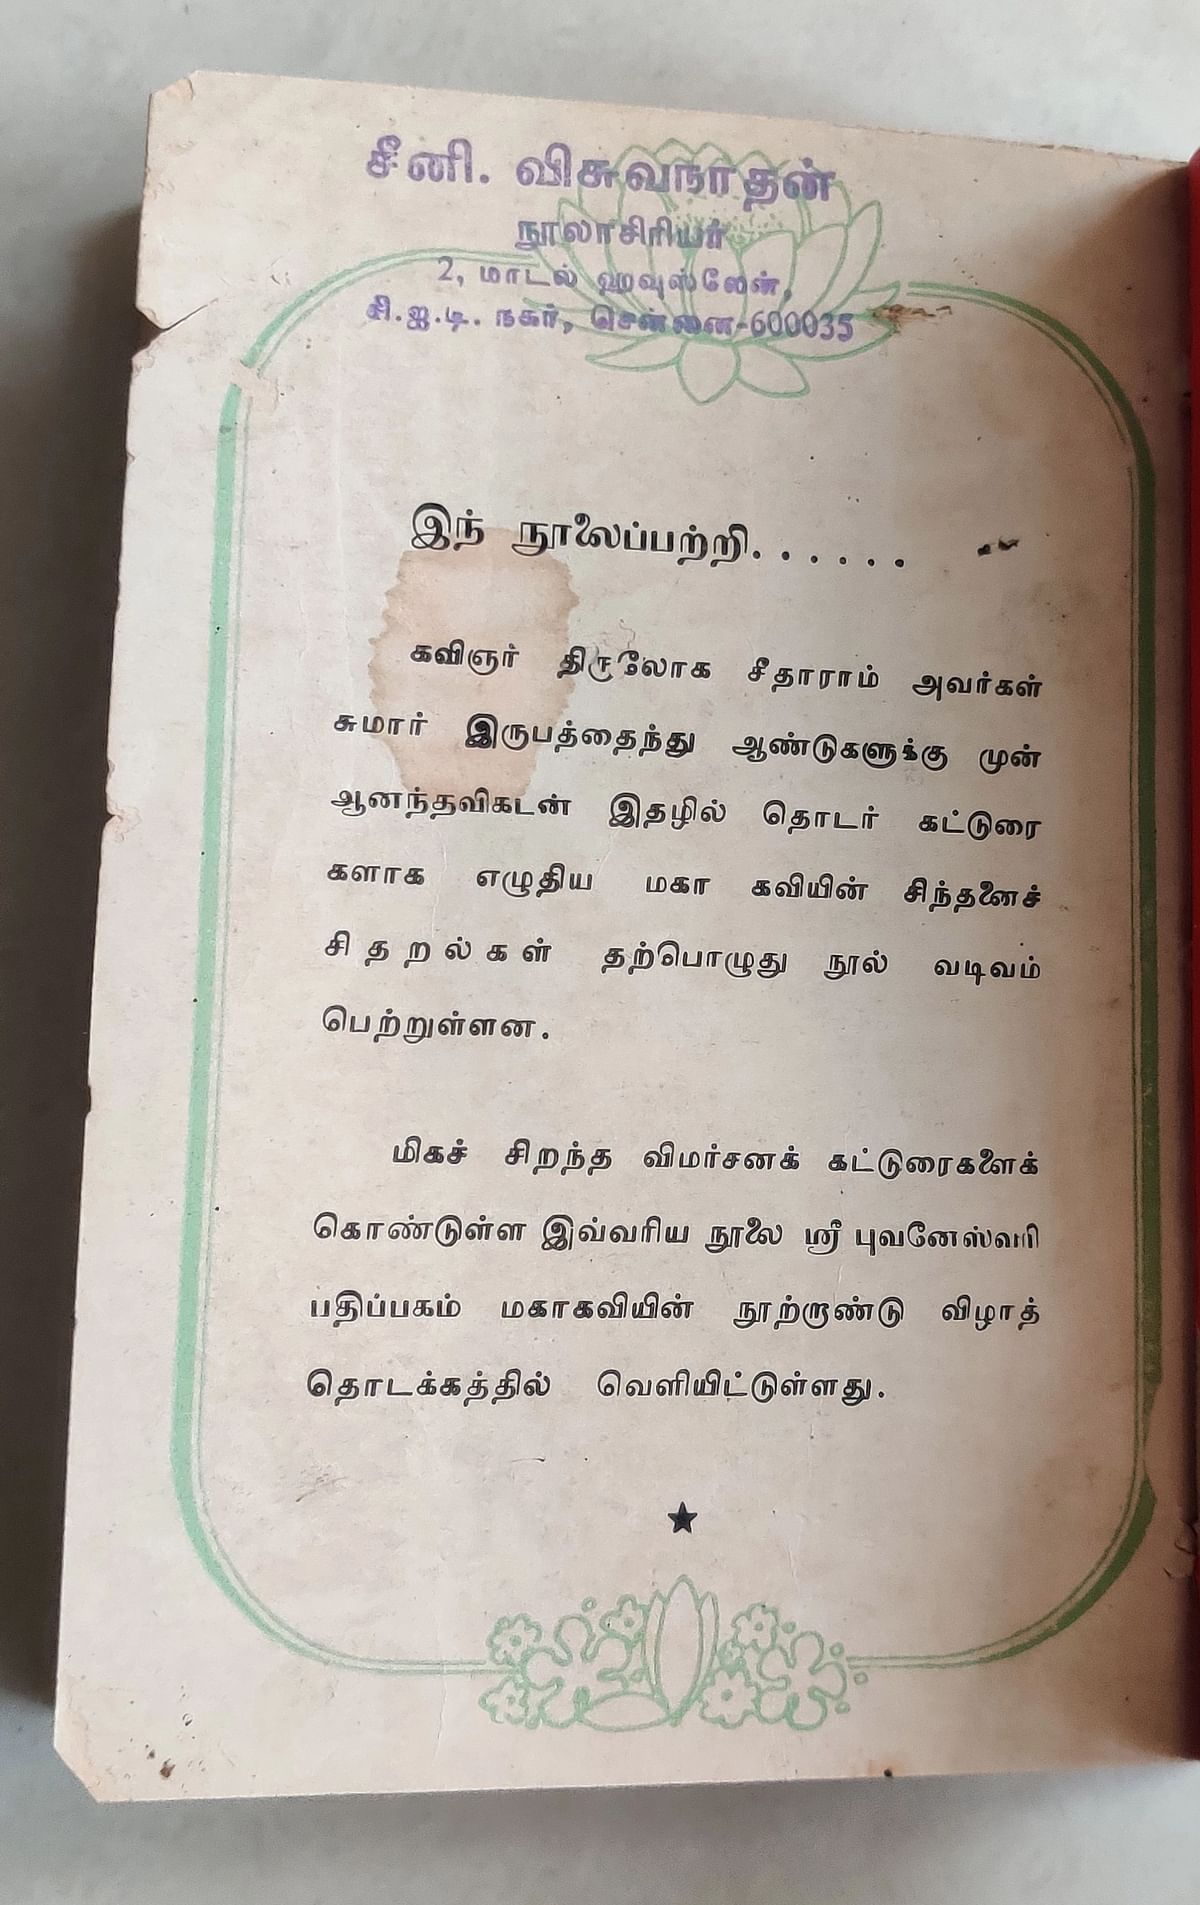 சீனி. விசுவநாதன்
நூலாசிரியர்
2, மாடல் ஹவுஸ்லேன்,
சி.ஐ.டி. நகர், சென்னை-600035
இந் நூலைப்பற்றி......
கவிஞர் திருலோக சீதாராம் அவர்கள்
சுமார் இருபத்தைந்து ஆண்டுகளுக்கு முன்
ஆனந்தவிகடன் இதழில் தொடர் கட்டுரை
களாக எழுதிய மகா கவியின் சிந்தனைச்
சிதறல்கள் தற்பொழுது நூல் வடிவம்
பெற்றுள்ளன.
மிகச் சிறந்த விமர்சனக் கட்டுரைகளைக்
கொண்டுள்ள இவ்வரிய நூலை ஸ்ரீ புவனேஸ்வரி
பதிப்பகம் மகாகவியின் நூற்றாண்டு விழாத்
தொடக்கத்தில் வெளியிட்டுள்ளது.